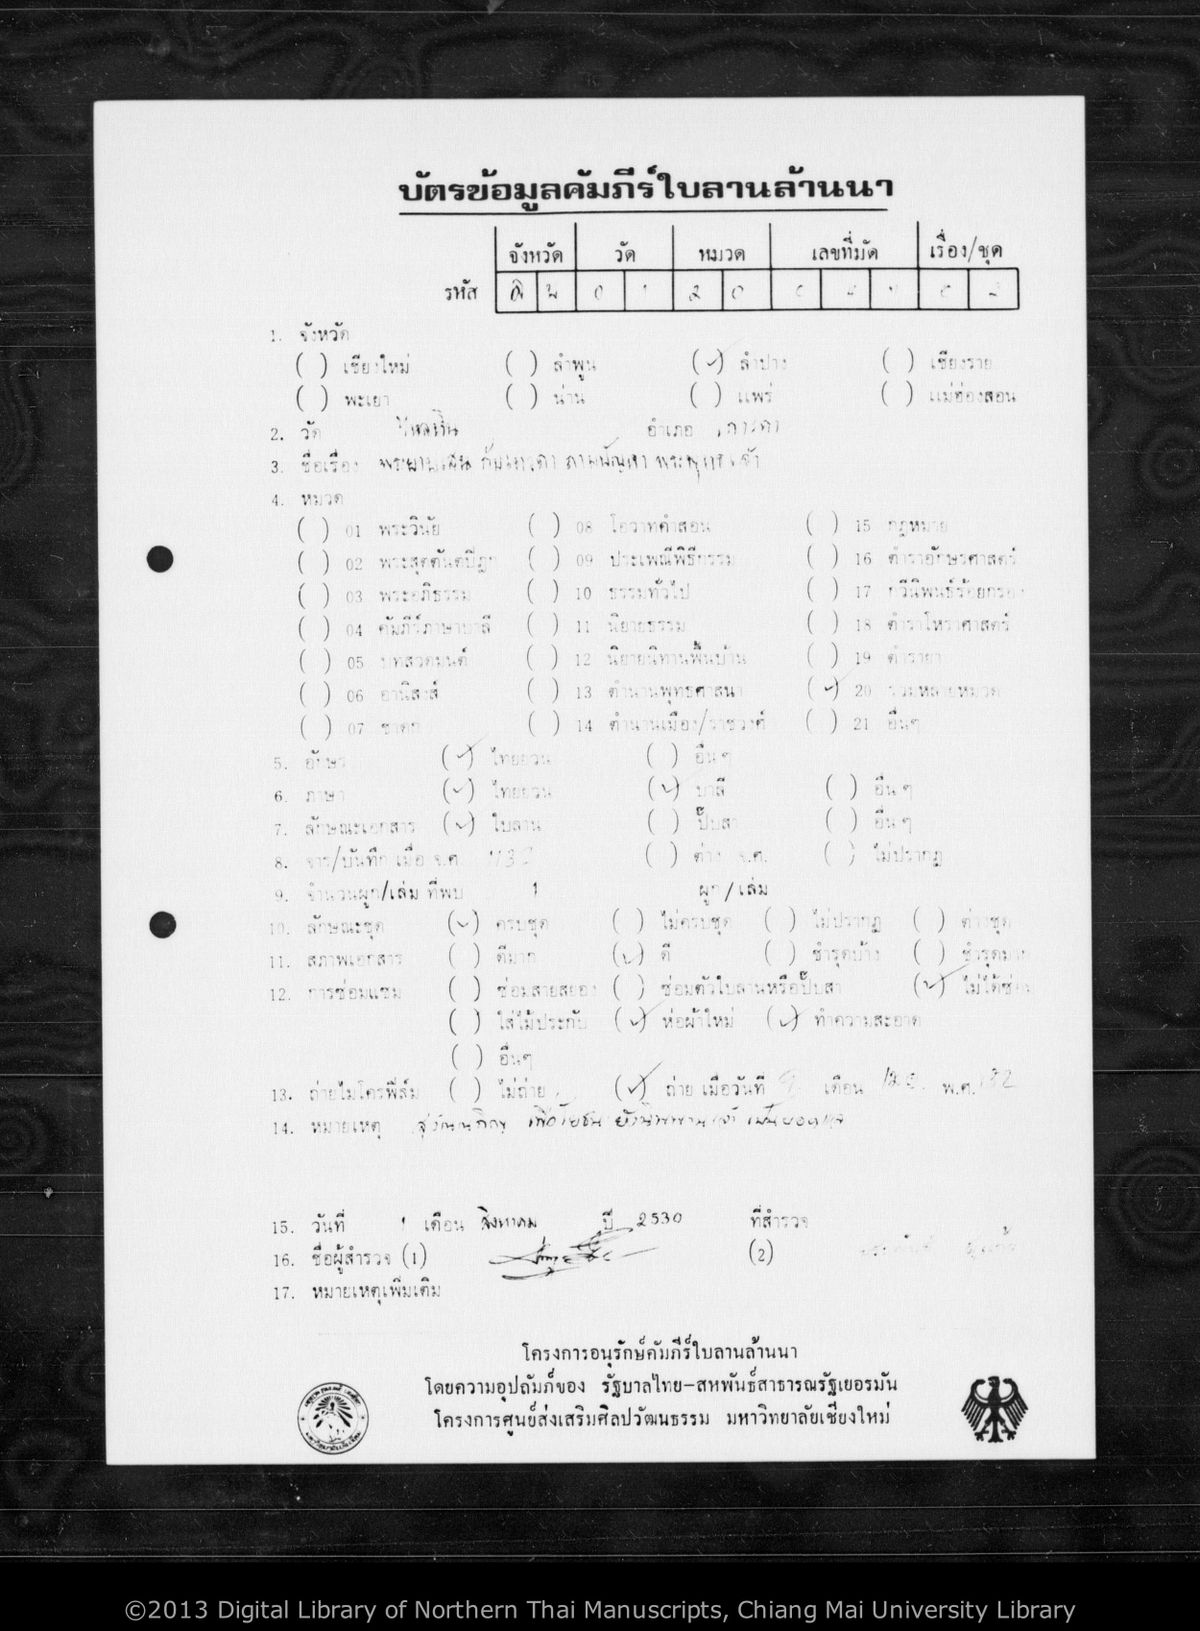 บัตรข้อมูลคัมภีร์ใบลานล้านนา
จังหวัด วัด หมวด เลขที่มัด เรื่อง/ชุด
รหัส 0 1 2 0
1. จังหวัด
( ) เชียงใหม่ ( ) ลำพูน (✓) ลำปาง ( ) เชียงราย
( ) พะเยา ( ) น่าน ( ) แพร่ ( ) แม่ฮ่องสอน
2. วัด ไหล่หิน อำเภอ เกาะคา
3. ชื่อเรื่อง
4. หมวด
( ) 01 พระวินัย ( ) 08 โอวาทคำสอน ( ) 15 กฎหมาย
( ) 02 พระสุตตันตปิฎก ( ) 09 ประเพณีพิธีกรรม ( ) 16 ตำราอักษรศาสตร์
( ) 03 พระอภิธรรม ( ) 10 ธรรมทั่วไป ( ) 17 กวีนิพนธ์ร้อยกรอง
( ) 04 คัมภีร์ภาษาบาลี ( ) 11 นิยายธรรม ( ) 18 ตำราโหราศาสตร์
( ) 05 บทสวดมนต์ ( ) 12 นิยายนิทานพื้นบ้าน ( ) 19 ตำรายา
( ) 06 อานิสงส์ ( ) 13 ตำนานพุทธศาสนา (✓) 20 รวมหลายหมวด
( ) 07 ชาดก ( ) 14 ตำนานเมือง/ราชวงศ์ ( ) 21 อื่นๆ
5. อักษร (✓) ไทยยวน ( ) อื่นๆ
6. ภาษา (✓) ไทยยวน (✓) บาลี ( ) อื่นๆ
7. ลักษณะเอกสาร (✓) ใบลาน ( ) ปั๊บสา ( ) อื่นๆ
8. จาร/บันทึก เมื่อ จ.ศ. ( ) ต่าง จ.ศ. ( ) ไม่ปรากฏ
9. จำนวนผูก/เล่ม ที่พบ 1 ผูก/เล่ม
10. ลักษณะชุด (✓) ครบชุด ( ) ไม่ครบชุด ( ) ไม่ปรากฏ ( ) ต่างชุด
11. สภาพเอกสาร ( ) ดีมาก (✓) ดี ( ) ชำรุดบ้าง ( ) ชำรุดมาก
12. การซ่อมแซม ( ) ซ่อมสายสยอง ( ) ซ่อมตัวใบลานหรือปั๊บสา (✓) ไม่ได้ซ่อม
( ) ใส่ไม้ประกับ (✓) ห่อผ้าใหม่ (✓) ทำความสะอาด
( ) อื่นๆ
13. ถ่ายไมโครฟิล์ม ( ) ไม่ถ่าย (✓) ถ่าย เมื่อวันที่ เดือน พ.ศ.
14. หมายเหตุ
15. วันที่ 1 เดือน สิงหาคม ปี 2530 ที่สำรวจ
16. ชื่อผู้สำรวจ (1) (2)
17. หมายเหตุเพิ่มเติม
โครงการอนุรักษ์คัมภีร์ใบลานล้านนา
โดยความอุปถัมภ์ของ รัฐบาลไทย-สหพันธ์สาธารณรัฐเยอรมัน
โครงการศูนย์ส่งเสริมศิลปวัฒนธรรม มหาวิทยาลัยเชียงใหม่
©2013 Digital Library of Northern Thai Manuscripts, Chiang Mai University Library